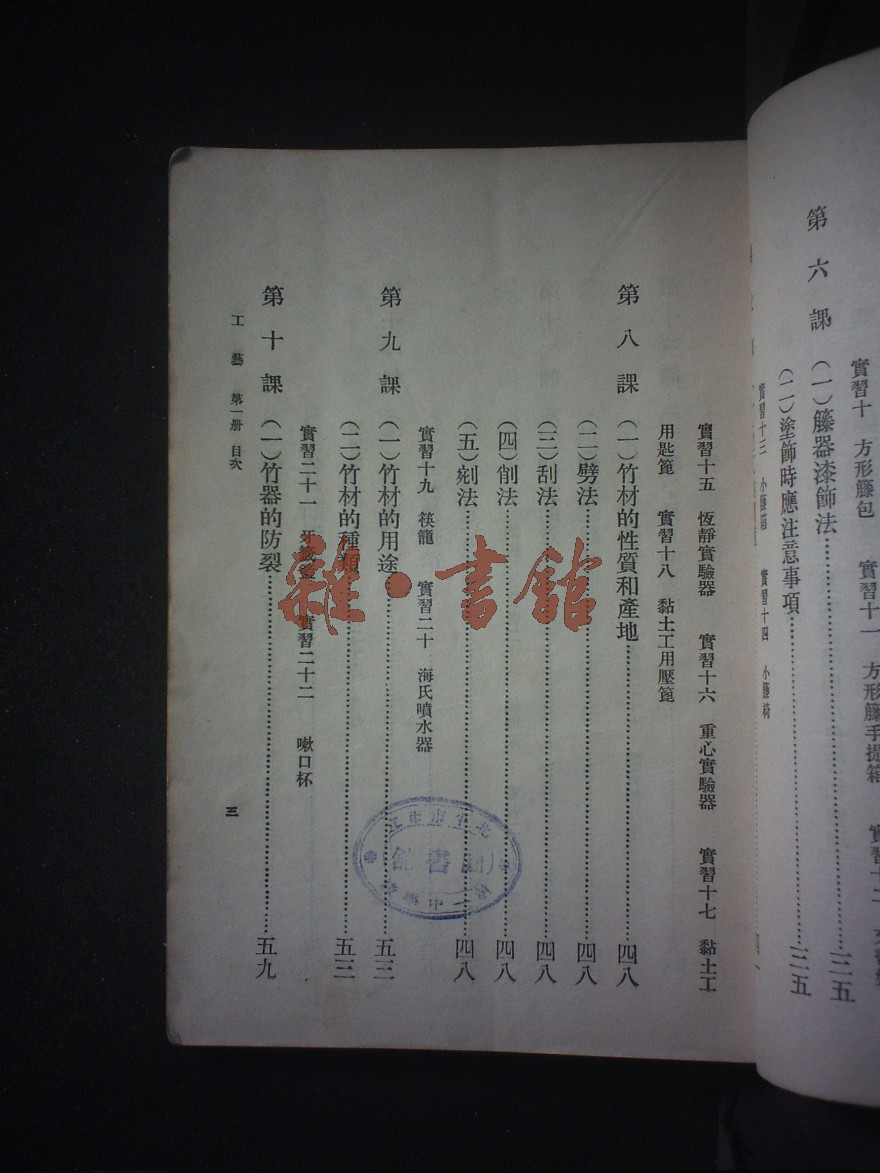 實習十　方形籐包　實習十一　方形籐手提箱
第六課　（一）籐器漆飾法……三五
（二）塗飾時應注意事項……三五
實習十三　小籐箱　實習十四　小籐椅
實習十五　恆靜實驗器　實習十六　重心實驗器　實習十七　黏土工
用匙篦　實習十八　黏土工用壓篦
第八課　（一）竹材的性質和產地……四八
（二）劈法……四八
（三）刮法……四八
（四）削法……四八
（五）剜法……四八
實習十九　筷籠　實習二十　海氏噴水器
第九課　（一）竹材的用途……五三
（二）竹材的種類……五三
實習二十一　實習二十二　嗽口杯
第十課　（一）竹器的防裂……五九
工藝　第一册　目次　三
雜·書館
北京市
圖書館